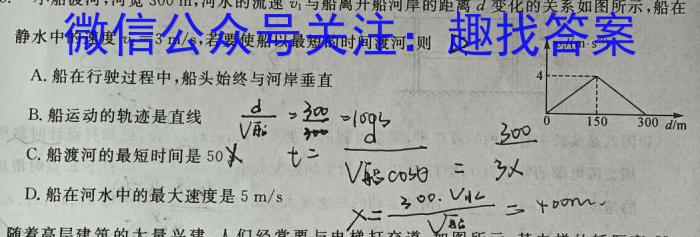 小船渡河,河宽 300 m,河水的流速 v₁ 与船离开船河岸的距离 d 变化的关系如图所示,船在
静水中的速度 v₂=3 m/s,若要使船以最短的时间渡河,则
微信公众号关注:趣找答案
A. 船在行驶过程中,船头始终与河岸垂直
B. 船运动的轨迹是直线
C. 船渡河的最短时间是 50
D. 船在河水中的最大速度是 5 m/s
d/V船 = 300/300 = 100s
t = d/V船cosθ = 300/3x
x = 300·V水/V船 = 400m.
4
0 150 300 d/m
随着高层建筑的大量兴建,人们经常要与电梯打交道